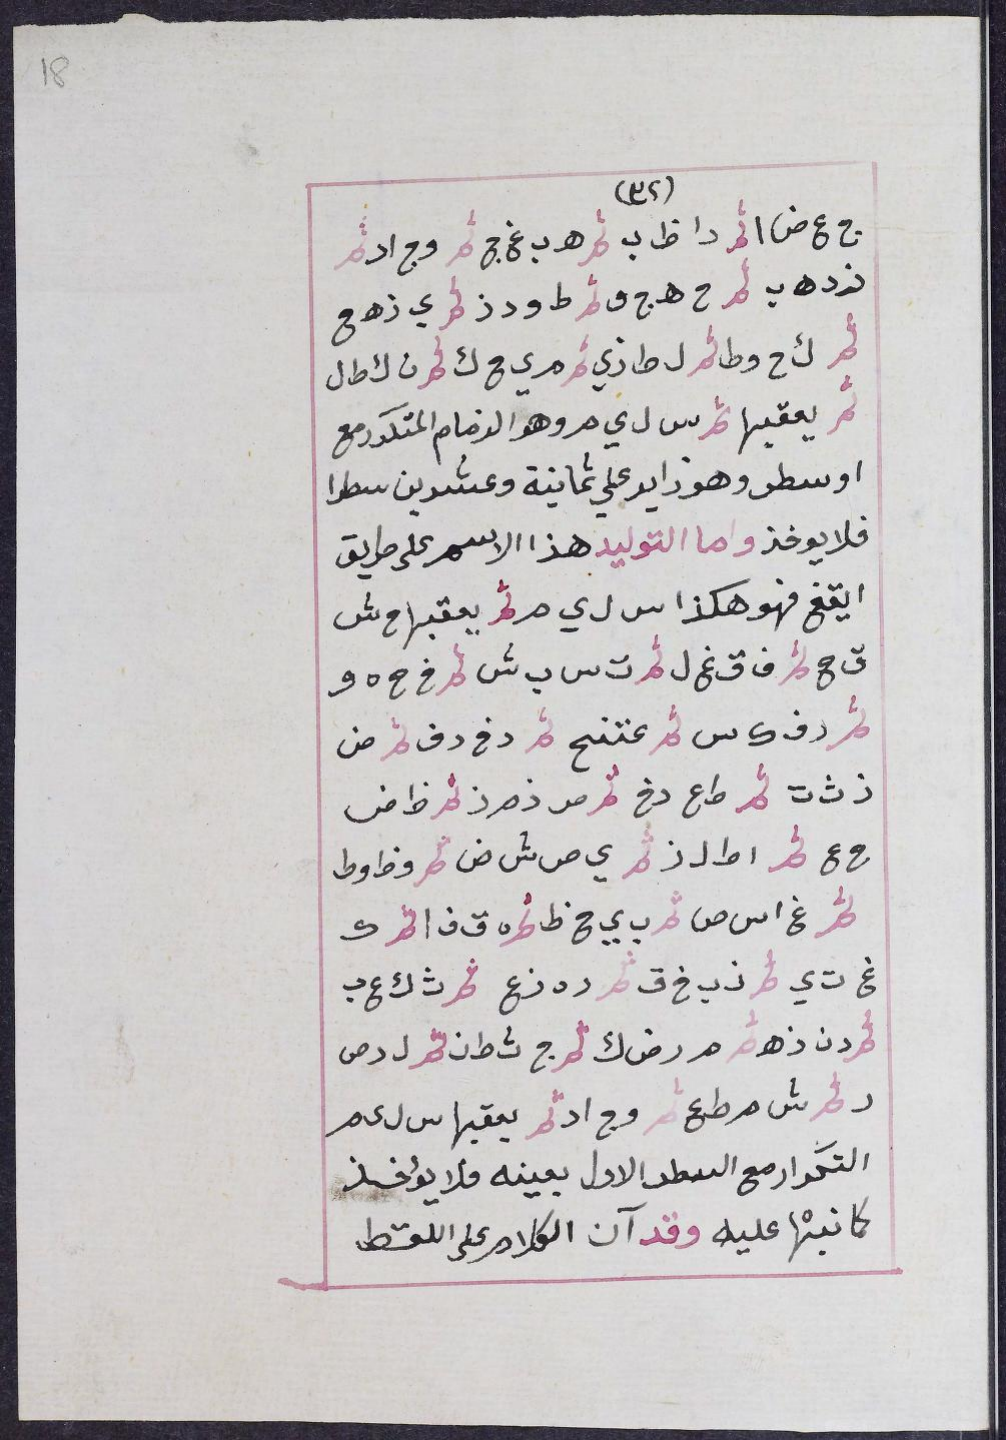 18
(٣٢)
ج ع ض ا ثم د ا ظ ب ثم ه ب غ ج ثم و ج ا د ثم
ز د ه ب ثم ح ه ج و ثم ط و د ز ثم ي ز ه ح
ثم ك ح و ط ا ثم ل ط ز ي ثم م ي ح ك ثم ن ك ط ل
ثم يعقبها ثم س ل ي م وهو الزمام المتكرر مع
او سطر وهو زايد علي ثمانية وعشرين سطرا
فلا يوخذ واما التوليد هذا الاسم على طريق
ايقغ فهو هكذا س ل ي م ثم يعقبها ح ش
ق ج ثم ف ق غ ل ثم ت س ب ش ثم خ ح ه و
ثم ر ف ك س ثم ع ت ن ح ثم د خ ر ف ثم ض
ذ ث ت ثم ط ع د خ ثم ص ذ م ز ثم ظ ا ض
ج ع ثم ا ط ل ذ ثم ي ص ش ض ثم و ظ ا و ط
ثم غ ا س ص ثم ب ي ج ظ ثم ه ق ف ا ثم ك
غ ت ي ثم ذ ب خ ق ثم ر ه ز ع ثم ث ك ع ب
ثم د ن ذ ه ثم م ر ض ك ثم ج ث ط ن ثم ل د ص
ر ثم ش م ط ع ثم و ج ا د ثم يعقبها س ل ي م
التكرار مع السطر الاول بعينه فلا يؤخذ
كما نبها عليه وقد آن الكلام على اللقط